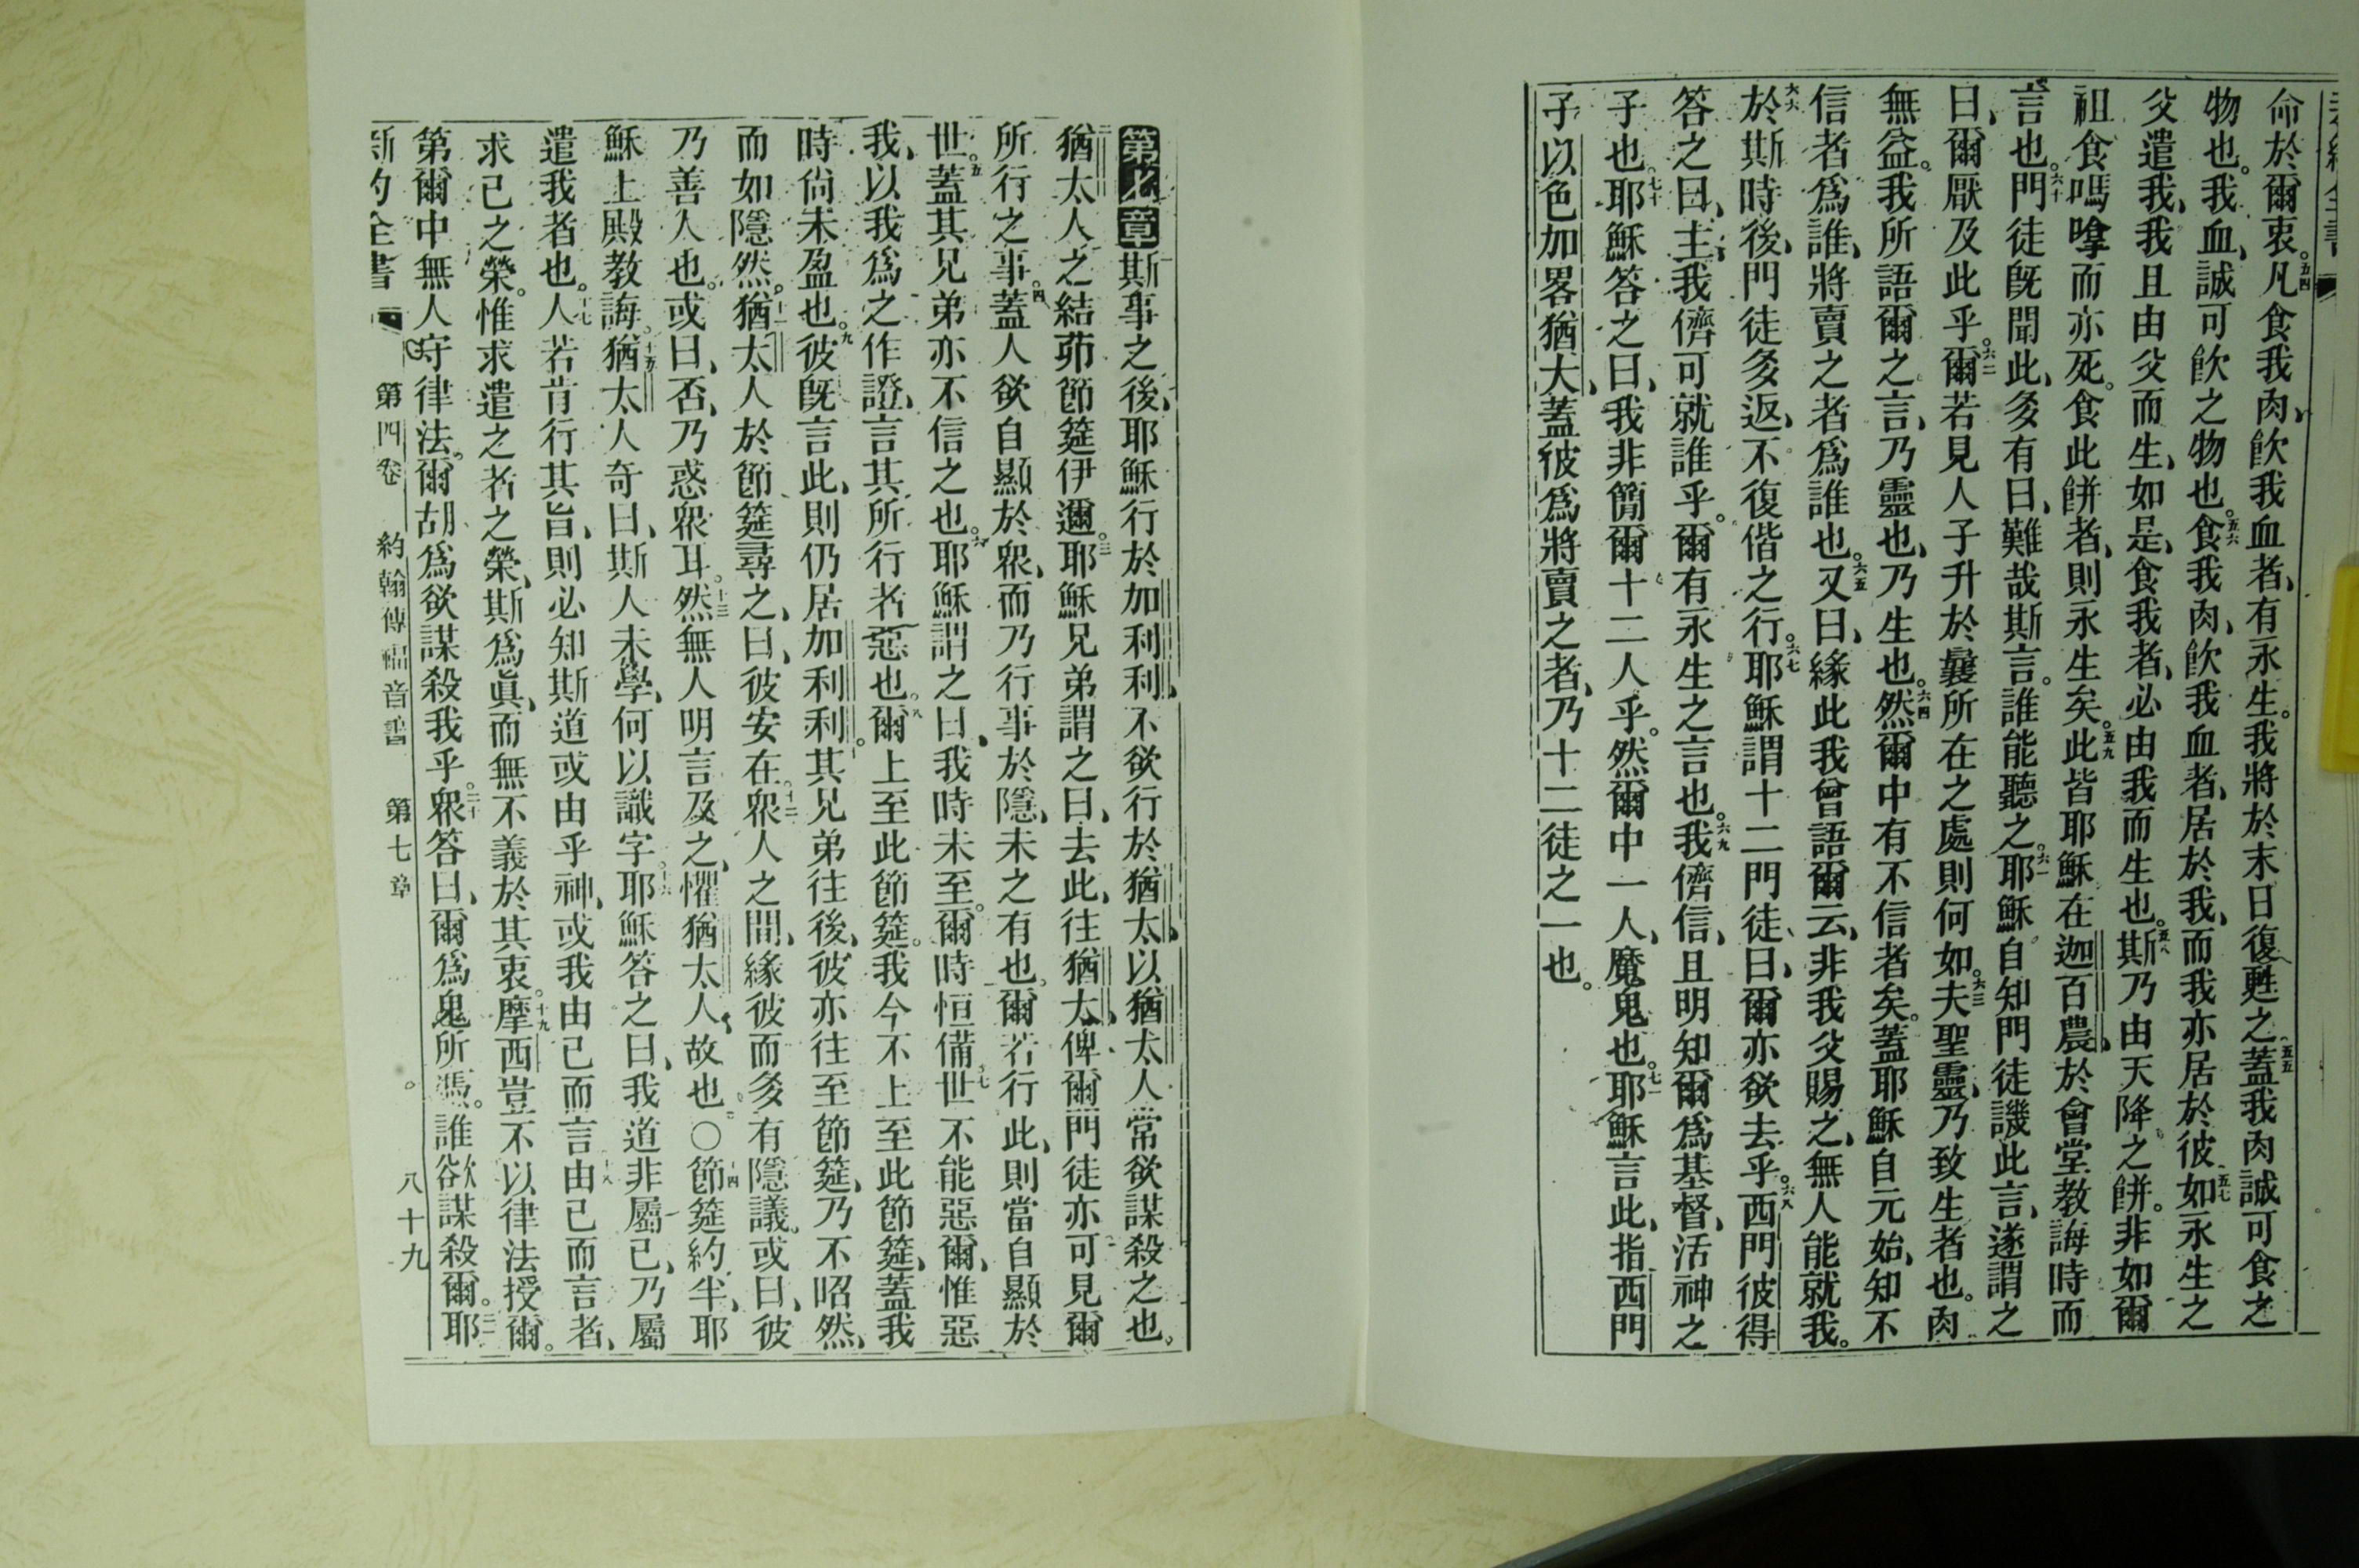 命於爾衷。五四凡食我肉、飮我血者、有永生。我將於末日復甦之、五五蓋我肉誠可食之
物也。我血、誠可飮之物也。五六食我肉、飮我血者、居於我、而我亦居於彼、五七如永生之
父遣我、我且由父而生、如是、食我者、必由我而生也。五八斯乃由天降之餠。非如爾
祖食嗎嗱而亦死。食此餠者、則永生矣。五九此皆耶穌在迦百農、於會堂敎誨時而
言也。六十門徒旣聞此、多有曰、難哉斯言。誰能聽之。六一耶穌自知門徒譏此言、遂謂之
曰、爾厭及此乎。六二爾若見人子升於曩所在之處則何如。六三夫聖靈、乃致生者也。肉
無益。我所語爾之言、乃靈也、乃生也。六四然爾中有不信者矣。蓋耶穌自元始、知不
信者爲誰、將賣之者爲誰也。六五又曰、緣此我曾語爾云、非我父賜之、無人能就我。
六六於斯時後、門徒多返、不復偕之行。六七耶穌謂十二門徒、曰、爾亦欲去乎。六八西門彼得
答之曰、主、我儕可就誰乎。爾有永生之言也。六九我儕信、且明知爾爲基督、活神之
子也。七十耶穌答之曰、我非簡爾十二人乎。然爾中一人、魔鬼也。七一耶穌言此、指西門
子以色加畧猶大、蓋彼爲將賣之者、乃十二徒之一也。
第七章斯事之後、耶穌行於加利利、不欲行於猶太、以猶太人常欲謀殺之也。
二猶太人之結茆節筵伊邇。三耶穌兄弟謂之曰、去此、往猶太、俾爾門徒亦可見爾
所行之事。四蓋人欲自顯於衆、而乃行事於隱、未之有也。爾若行此、則當自顯於
世。五蓋其兄弟亦不信之也。六耶穌謂之曰、我時未至。爾時恒備、七世不能惡爾、惟惡
我、以我爲之作證、言其所行者惡也。八爾上至此節筵。我今不上至此節筵、蓋我
時尙未盈也。九彼旣言此、則仍居加利利。其兄弟往後、彼亦往至節筵、乃不昭然、
而如隱然。十一猶太人於節筵尋之、曰、彼安在。十二衆人之間、緣彼而多有隱議。或曰、彼
乃善人也。或曰、否、乃惑衆耳。十三然無人明言及之、懼猶太人故也。〇十四節筵約半、耶
穌上殿敎誨。十五猶太人奇曰、斯人未學、何以識字。十六耶穌答之曰、我道非屬己、乃屬
遣我者也。十七人若肯行其旨、則必知斯道或由乎神、或我由己而言。十八由己而言者、
求己之榮。惟求遣之者之榮、斯爲眞、而無不義於其衷。十九摩西豈不以律法授爾。
第爾中無人守律法。爾胡爲欲謀殺我乎。二十衆答曰、爾爲鬼所憑。誰欲謀殺爾。二一耶
新約全書 第四卷 約翰傳福音書 第七章 八十九